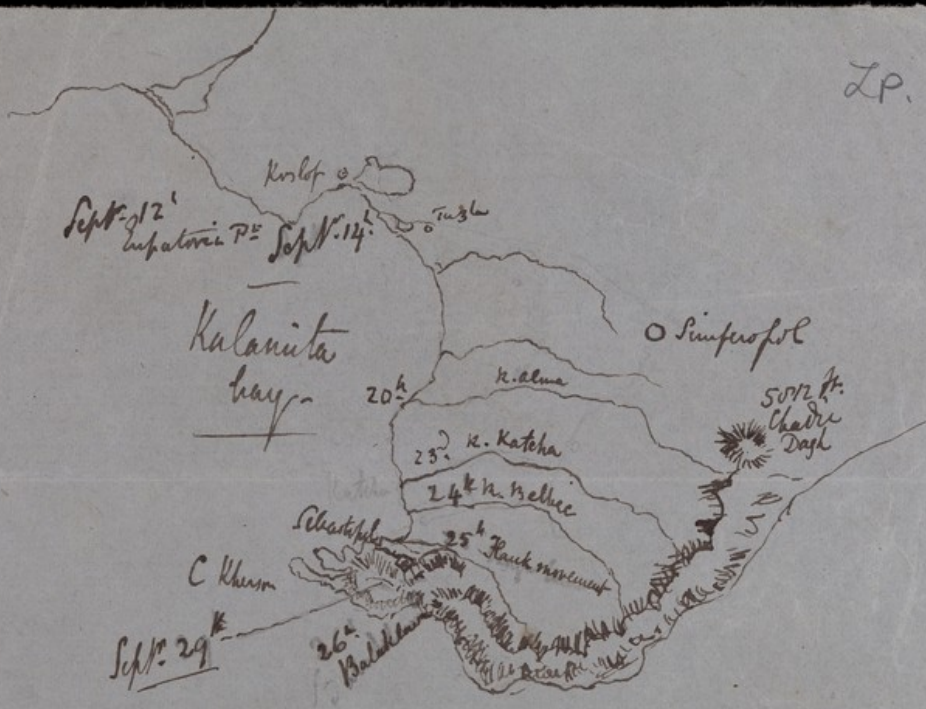 Lp.
Koslof
Tuzla
Septr. 12th
Eupatoria Pt.
Septr. 14th
Simferopol
Kalamita
bay.
20th
R. Alma
5012 ft.
Chadir
Dagh
23d R. Katcha
Katcha
24th R. Belbec
Sebastopol
25th Flank movement
C Kherson
26th
Balaklava
Septr. 29th